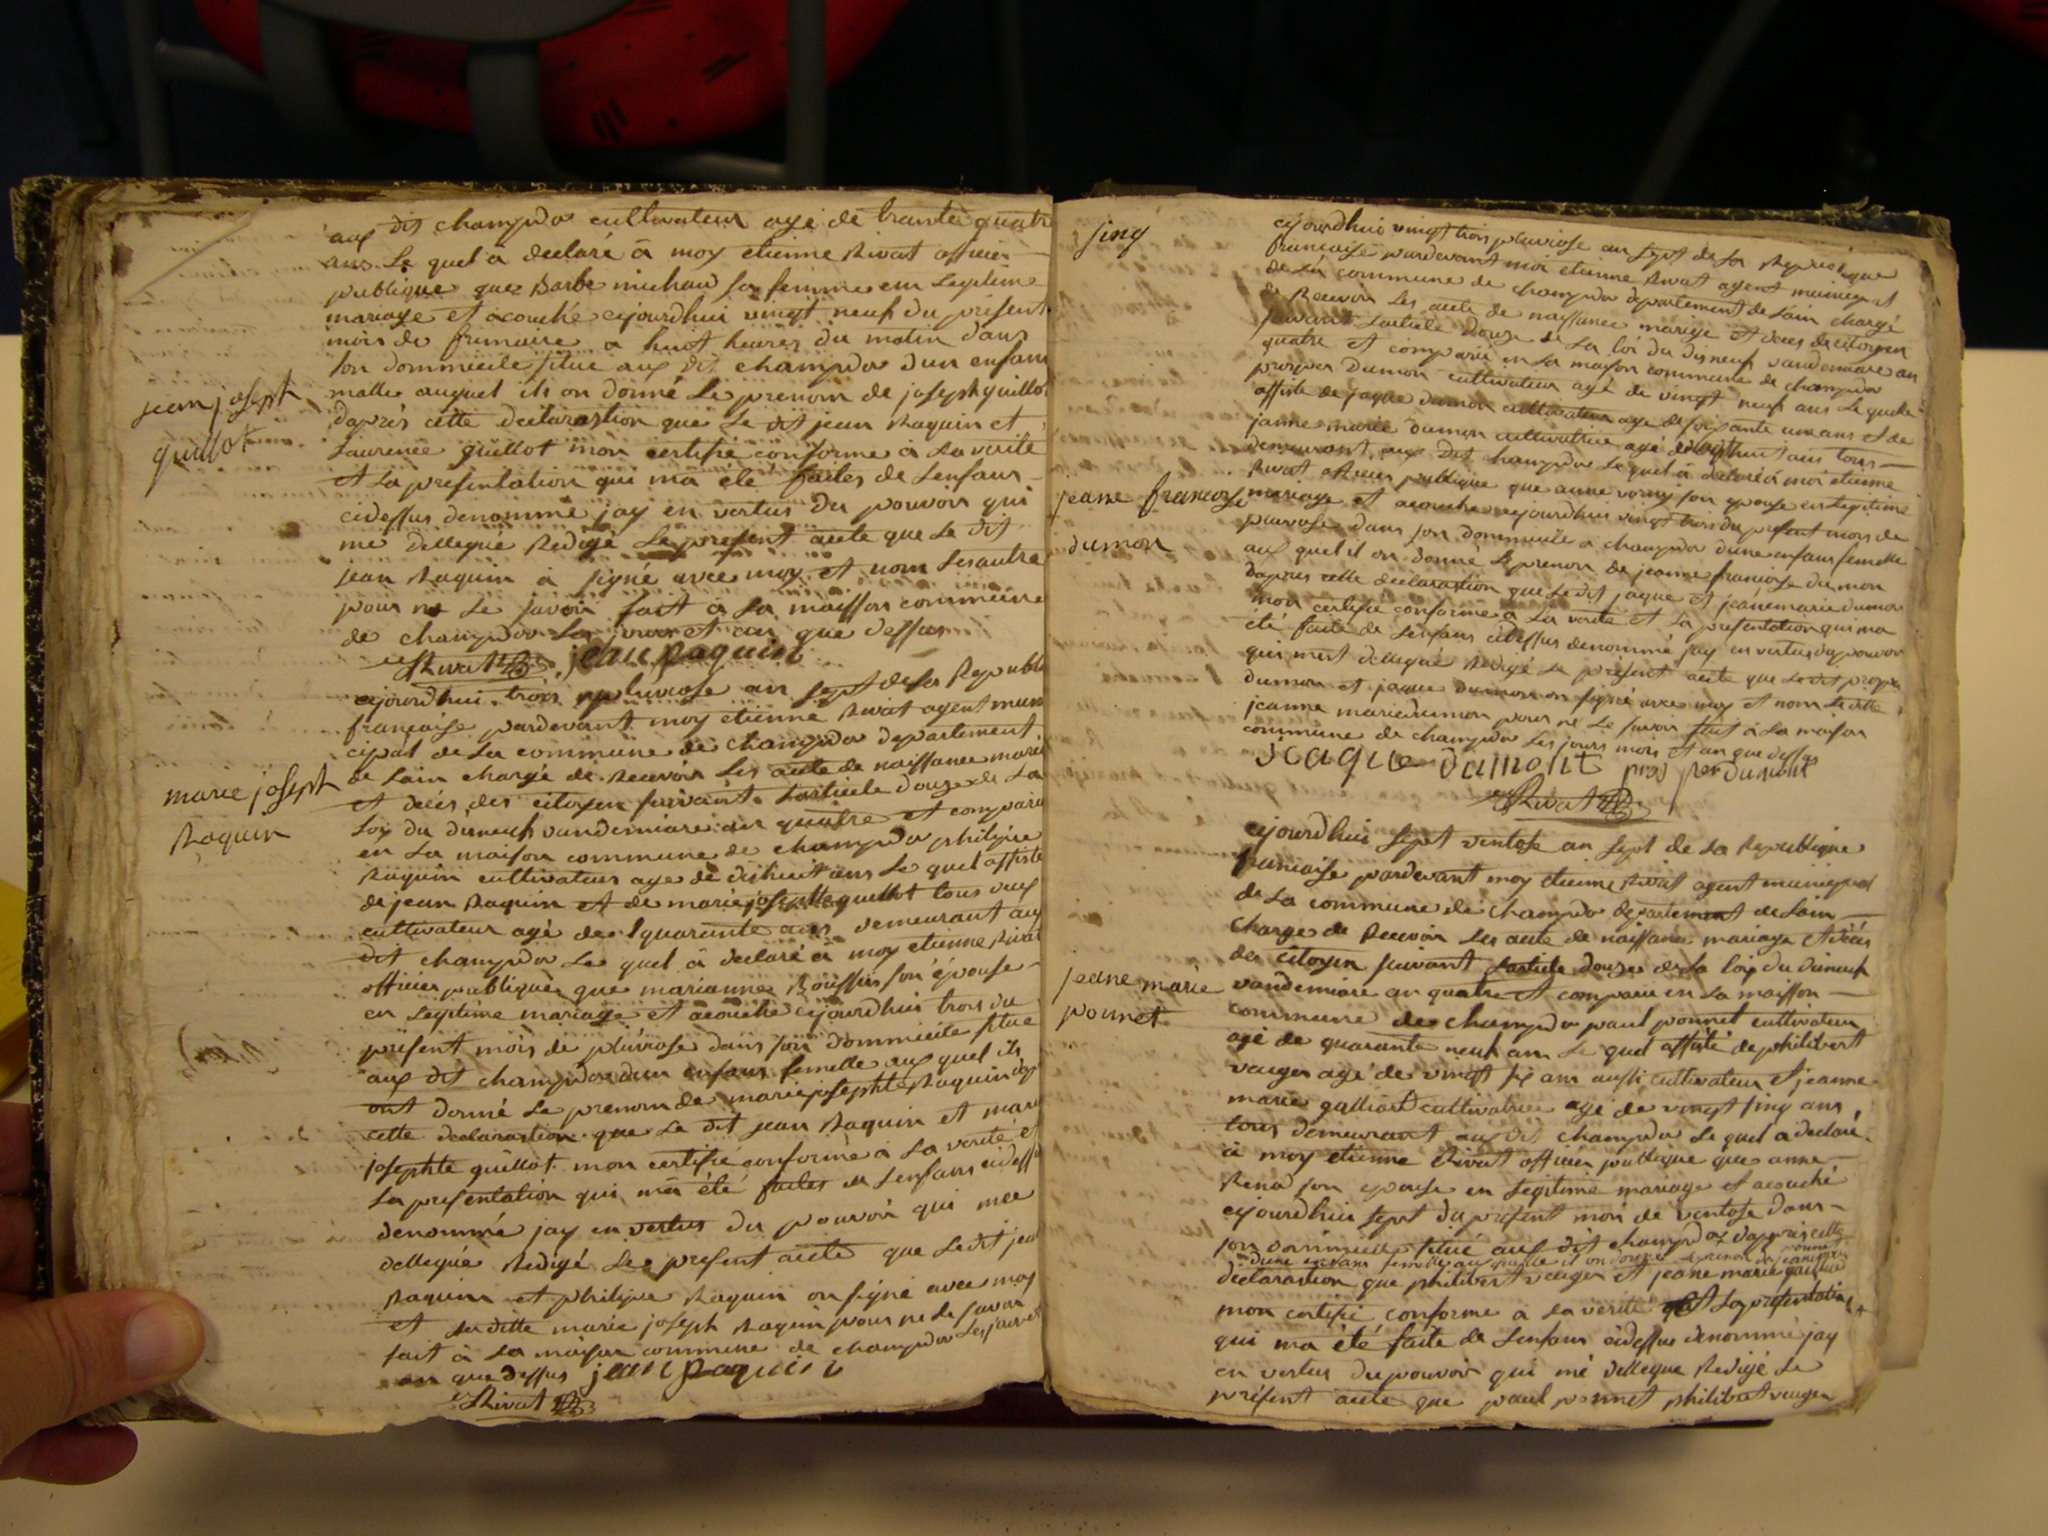 aux dit champdor cultivateur agé de trante quatre
ans Le quel a declaré à moy etienne Rivat officier
publique que Barbe michaud sa femme em Legitime
mariage et acouché cejourdhui vingt neuf du présent
mois de frimaire a huit heures du matin dans
son dommicile situe aux dit champdor dun enfans
malle auquel ils on donné Le prenom de joseph guillot
jean joseph
guillot
daprès cette declarastion que Le dit jean Raquin et
Laurence guillot mon certifié conforme à La verité
et La presentation qui ma été faites de Lenfans
cidessus denommé jay en vertus du pouvoir qui
me dellegué Redigé Le present acte que Le dit
jean Raquin à signé avec moy et nom Les autre
pour ne Le savoir fait à La maisson commune
de champdor Les jours et an que dessus
Rivat jean Raquin
cejourdhui trois pluviose an sept de La Republi
francaise pardevant moy etienne Rivat agent muni
cipal de La commune de champdor departement
de Lain chargé de Recevoir Les acte de naissance maria
marie joseph
Raquin
et décés des citoyen suivant Larticle douze de La
Loy du dineuf vandemiare an quatre et comparu
en La maison commune de champdor philipe
Raquin cultivateur age de dishuit ans Le quel assisté
de jean Raquin et de marie josephte guillot tous deux
cultivateur agé de quarante ans demeurant aux
dit champdor Le quel à declaré à moy etienne Rivat
officier publique que marianne Roussus son épouse
en Legitime mariage et acouché cejourdhui trois du
présent mois de pluviose dans son dommicile situe
aux dit champdor dun enfans femelle aux quel ils
ont donné Le prenom de marie josephte Raquin dap
cette declarastion que Le dit jean Raquin et mari
josephte guillot mon certifié conforme à La verité et
La presentation qui ma été faites de Lenfans cidessu
denommé jay en vertus du pouvoir qui mee
dellegué Redigé Le present acte que Ledit jea
Raquin et philipe Raquin on signé avec moy
et Laditte marie joseph Raquin pour ne Le savoir
fait à La maison commune de champdor Les jours et
an que dessus jean Raquin
Rivat
sinq
cejourdhui vingt trois pluviose an sept de La Republique
francaise pardevant moi etienne Rivat agent municipal
de La commune de champdor departement de Lain chargé
de Recevoir Les acte de naissance mariage et décés de citoyen
suivant Larticle douze de La loi du disneuf vandemiare an
quatre et comparu en La maison commune de champdor
prosper Dumon cultivateur agé de vingt neuf ans Le quel
assisté de jaque Dumon cultivateur age de soixante un ans et de
janne marie Dumon cultivatrice agé de vingt huit ans tous
demeurant aux dit champdor Le quel à declaré à moi etienne
Rivat officier publique que anne son epouse en Legitime
jeanne francoise
dumon
mariage et acouché cejourdhui vingt trois du present mois de
pluviose dans son dommicile a champdor dune enfans femelle
aux quel il on donné Le prenom de jeanne francoise Dumon
daprès cette declarastion que Le dit jaque et jeanne marie dumon
mon certifié conforme à La verité et La presentation qui ma
été faite de Lenfans cidessus denommé jay en vertus du pouvoir
qui mest dellegué Redigé Le présent acte que Le dit prosper
dumon et jaque dumon on signé avec moy et nom Laditte
jeanne marie dumon pour ne Le savoir fait à La maison
commune de champdor Les jours mois et an que dessus
jcaque dumont prosper Dumont
Rivat
cejourdhui sept ventose an sept de La Republique
francaise pardevant moy etienne Rivat agent municipal
de La commune de champdor departement de Lain
chargé de Recevoir Les acte de naissance mariage et décés
des citoyen suivant Larticle douze de La loy du dineuf
jeane marie
ponnet
vandemiare an quatre et comparu en La maisson
commune de champdor paul ponnet cultivateur
agé de quarante neuf ans Le quel assisté de philibert
vauger agé de vingt six ans aussi cultivateur et jeanne
marie galliard cultivatrice agé de vingt sinq ans
tous demeurant aux dit champdor Le quel a declaré
à moy etienne Rivat officier publique que anne
Rena son epouse en Legitime mariage et acouché
cejourdhui sept du présent mois de ventose dans
son dommicille situé aux dit champdor daprès cette
dune enfans femelle aux quelle il on donné Le prenom de jeanne marie ponnet
declarastion que philibert vauger et jeane marie galliard
mon certifié conforme a La verité et La presentation
qui ma été faite de Lenfans cidessus denommé jay
en vertus du pouvoir qui mé dellegue Redigé Le
présent acte que paul ponnet philibert vauger